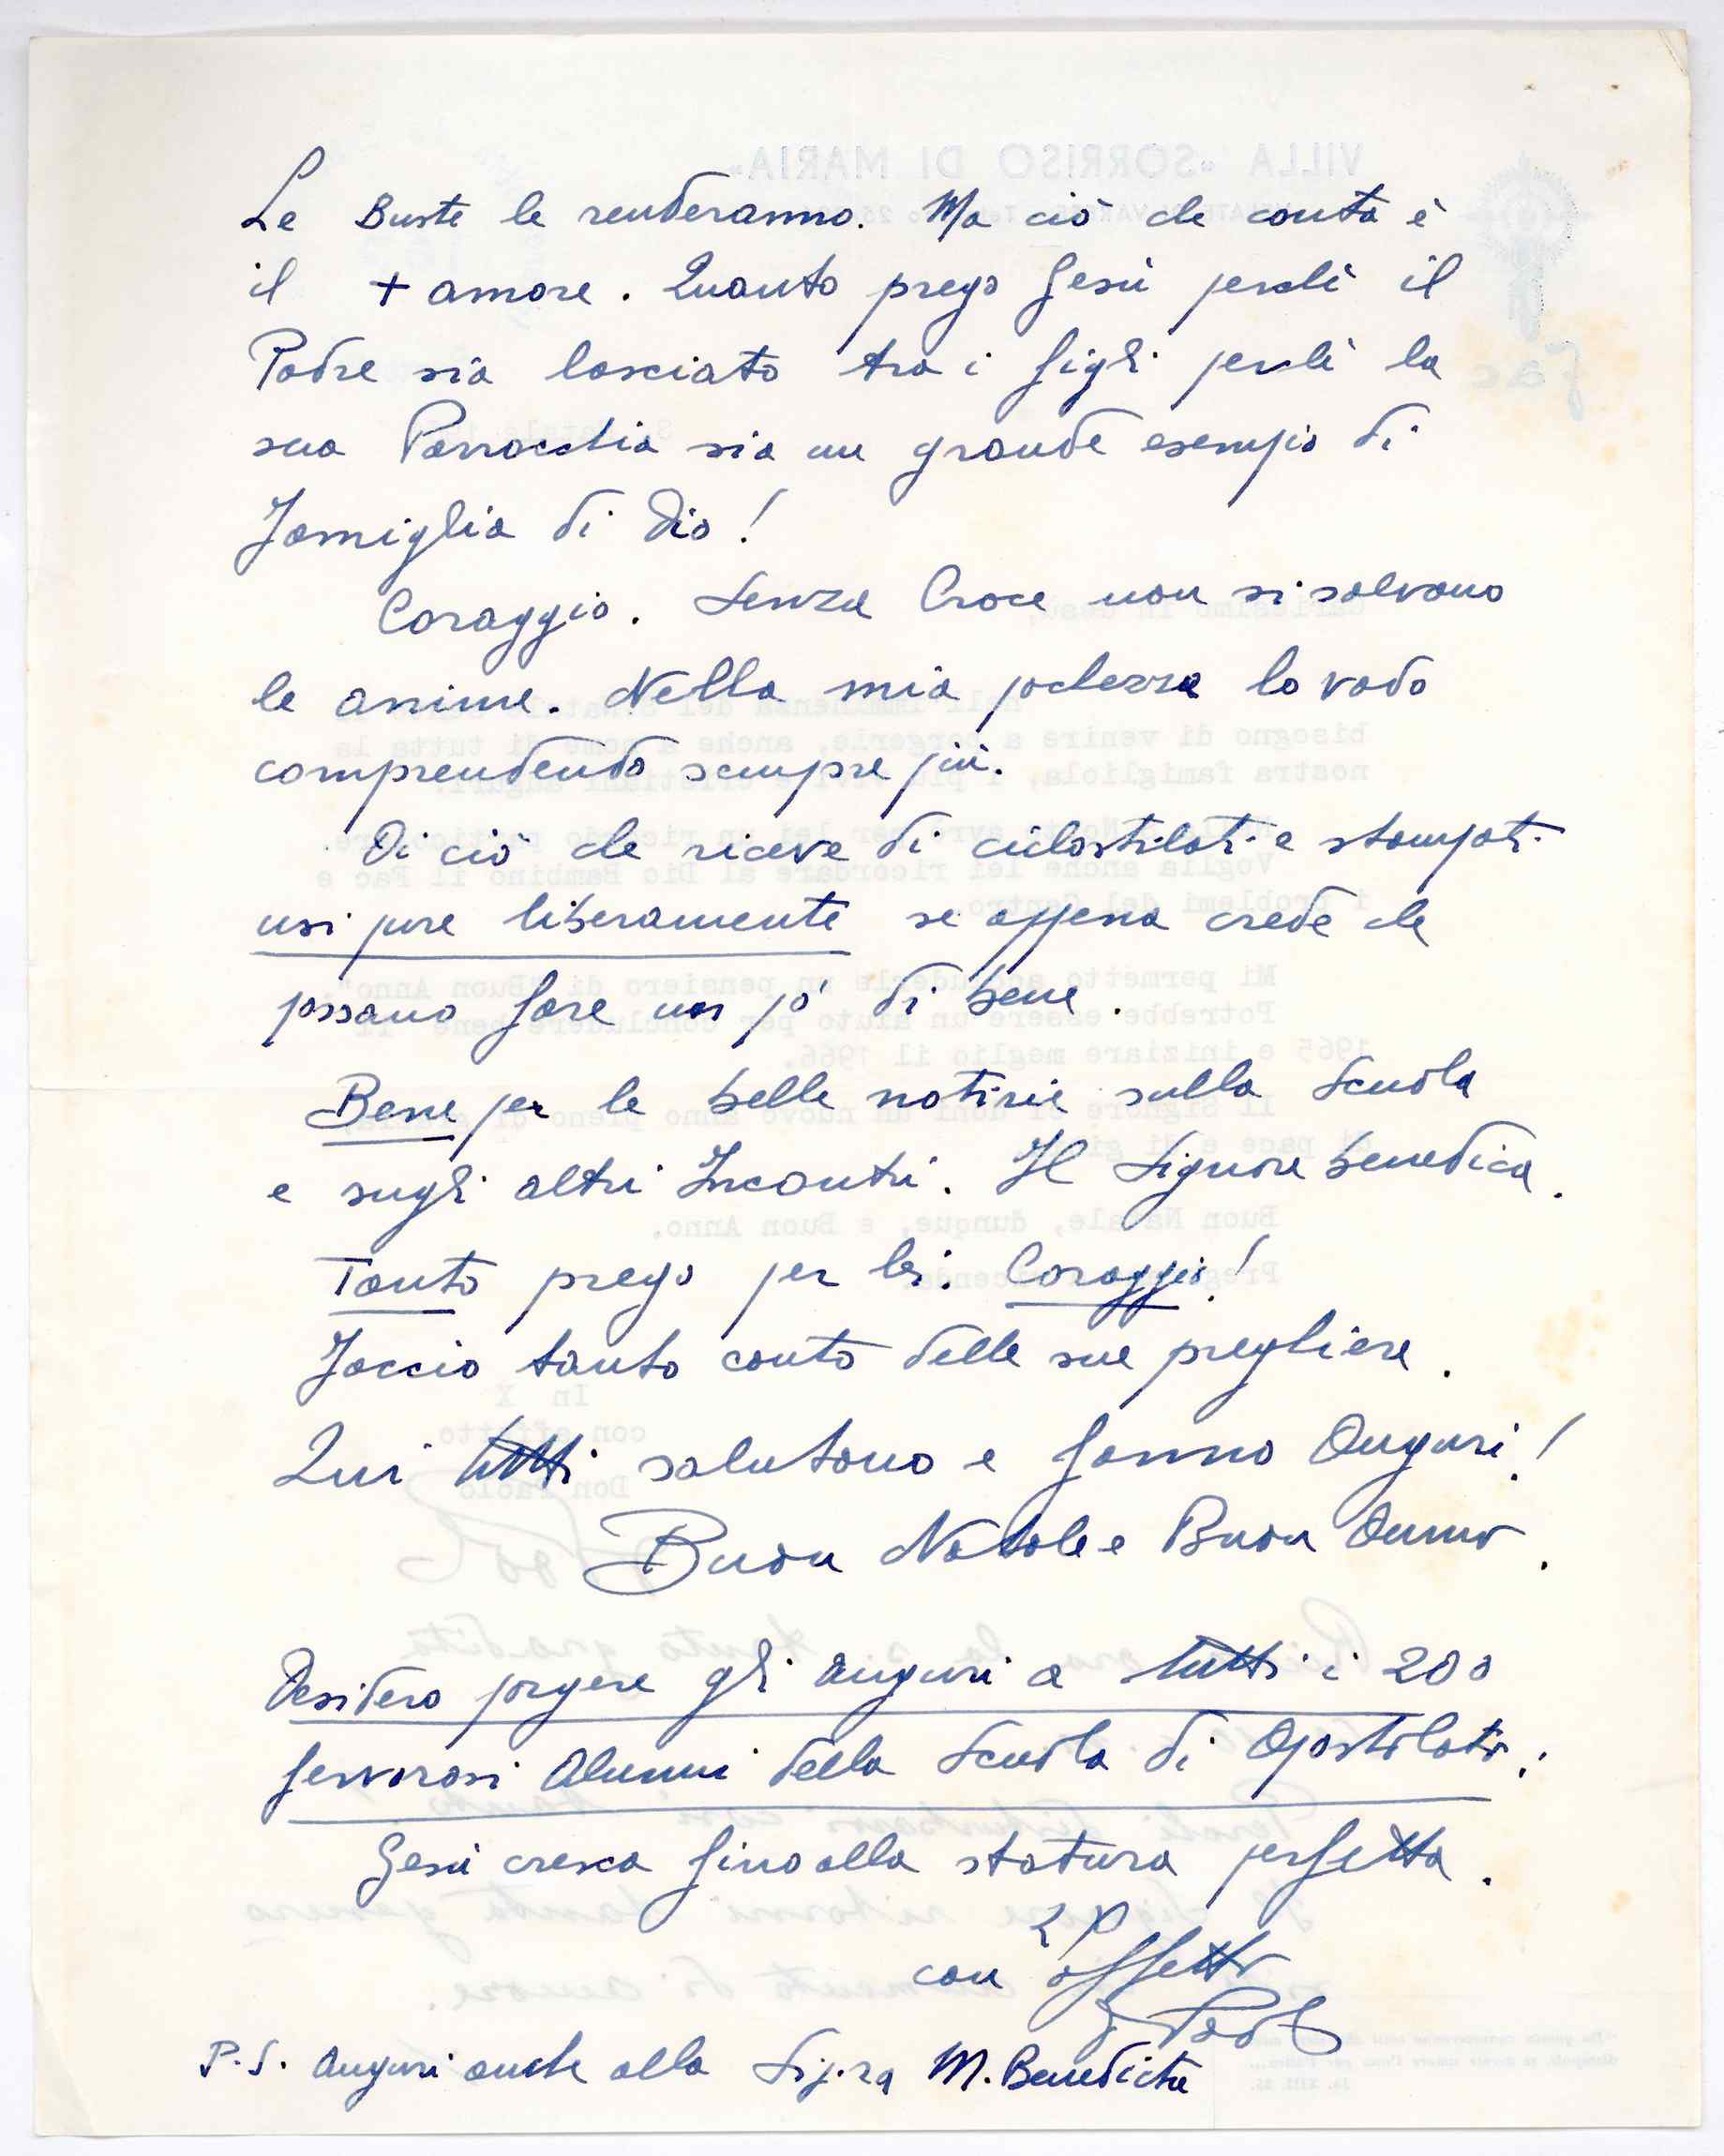 Le Buste le renderanno. Ma ciò che conta è
il + amore. Quanto prego Gesù perché il
Padre sia lasciato tra i figli perché la
sua Parrocchia sia un grande esempio di
Famiglia di Dio!
Coraggio. Senza Croce non si salvano
le anime. Nella mia pochezza lo vado
comprendendo sempre più.
Di ciò che riceve di ciclostilati e stampati
usi pure liberamente se appena crede che
possano fare un po' di bene.
Bene per le belle notizie sulla Scuola
e sugli altri Incontri. Il Signore benedica.
Tanto prego per lei. Coraggio!
Faccio tanto conto delle sue preghiere.
Qui tutti salutano e fanno Auguri!
Buon Natale e Buon Anno.
Desidero porgere gli auguri a tutti i 200
fervorosi Alunni della Scuola di Apostolato:
Gesù cresca fino alla statura perfetta.
con affetto
d Paolo
P.S. Auguri anche alla Sig.ra M. Benedicta